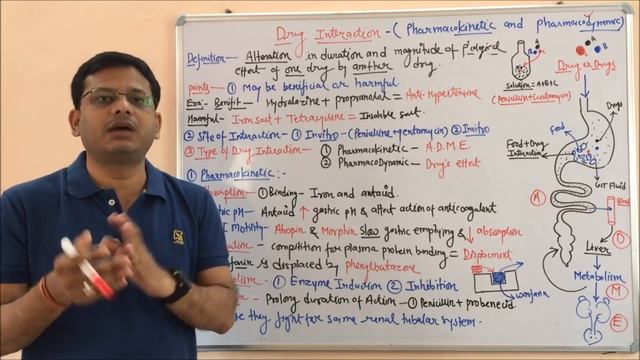 Drug Interaction - (Pharmacokinetic and pharmacodynamic)
Definition - Alteration in duration and magnitude of p'cological
effect of one drug by another drug.
points - ① May be benificial or harmful.
Exa:- Benifit - Hydralazine + propranolol = Anti Hypertensive
Harmful - Iron salt + Tetracycline = Insoluble salt.
② Site of Interaction - ① Invitro - (Penicilline + gentamycin) ② Invitro
③ Type of Drug Interaction - ① Pharmacokinetic - A.D.M.E.
② PharmacoDynamic - Drug's effect
① Pharmacokinetic :-
sorption - ① Binding - Iron and antacid.
tric pH - Antacid ↑ gastric pH & affect action of anticoagulant
I Motility - Atropin & Morphin slow gastric emptying & ↓ absorption
ution - competition for plasma protein binding = Displacment
farin is displaced by phenylbutazone
olism - ① Enzyme Induction ② Inhibition
Prolong duration of Action - ① Penicillin + probenecid.
se they fight for same renal tubular system.
A
B
Solution = A+B+C
(Penicillin + Gentamycin)
Drug or Drugs
A
B
Food
Drugs
Food + Drug
Interaction
GIT Fluid
A
Blood
D
Liver
Metabolism
M
E
warfarin